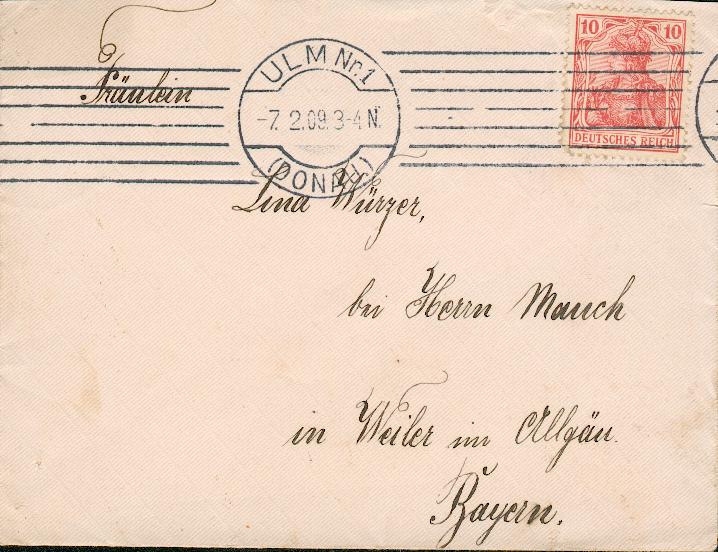 10 10
DEUTSCHES REICH
ULM Nr. 1
-7. 2.09. 3-4 N.
(DONAU)
Fräulein
Lina Würzer,
bei Herrn Mauch
in Weiler im Allgäu.
Bayern.